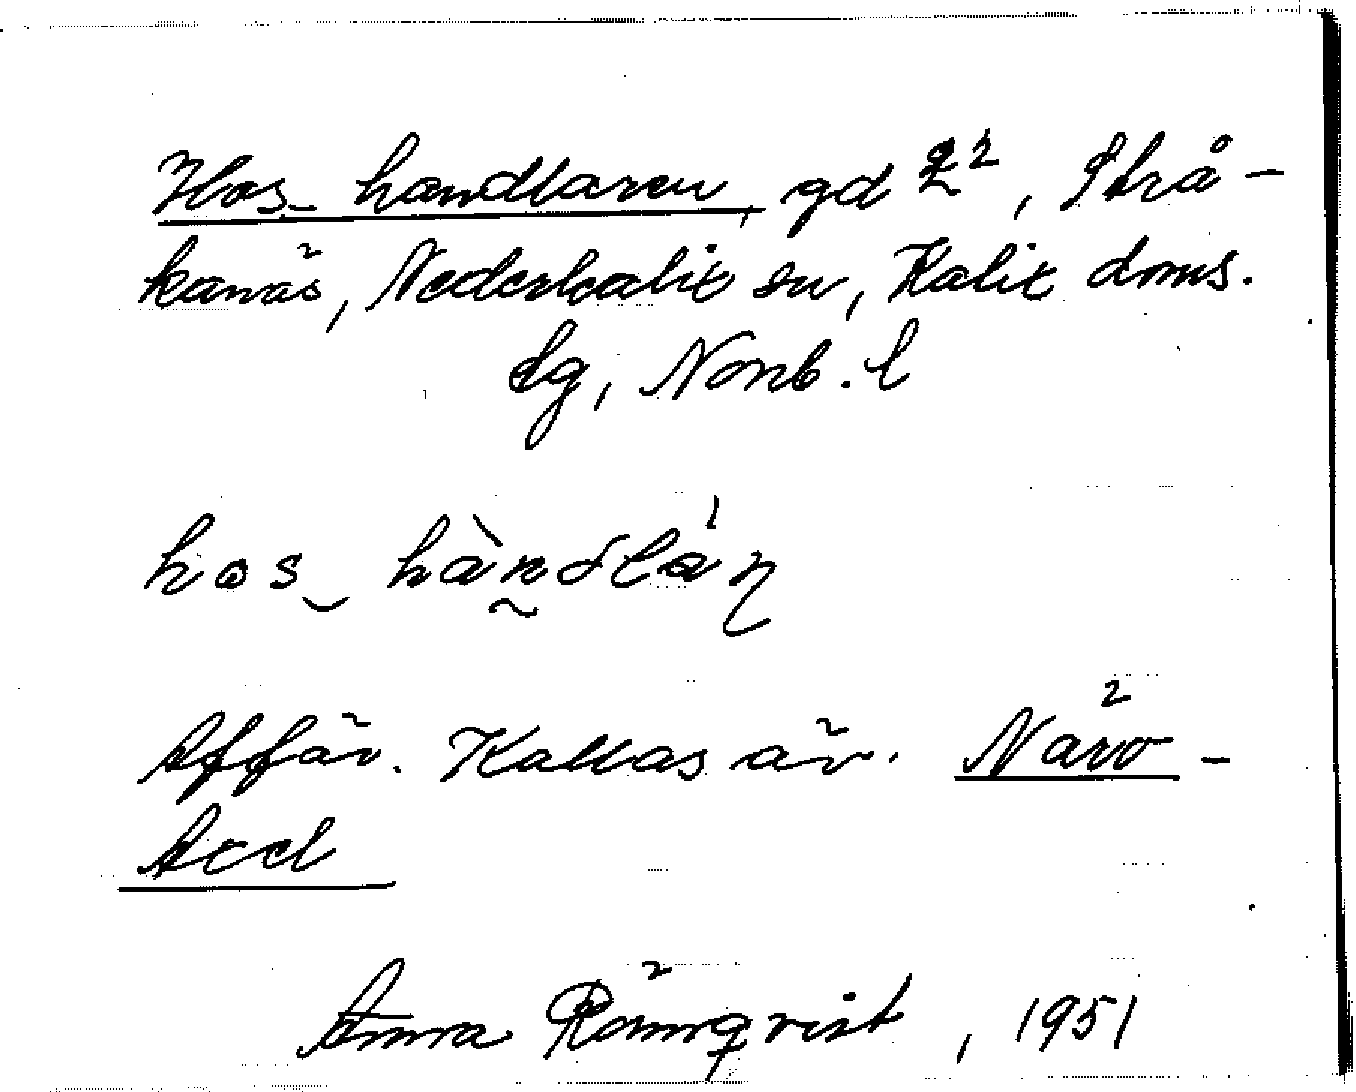 Hos handlaren, gd 2², Strå-
kanäs, Nederkalix sn, Kalix doms.
sg, Norrb. l
hos hàndlán
Affär. Kallas äv. Närv-
Axel
Anna Rönnqvist, 1951